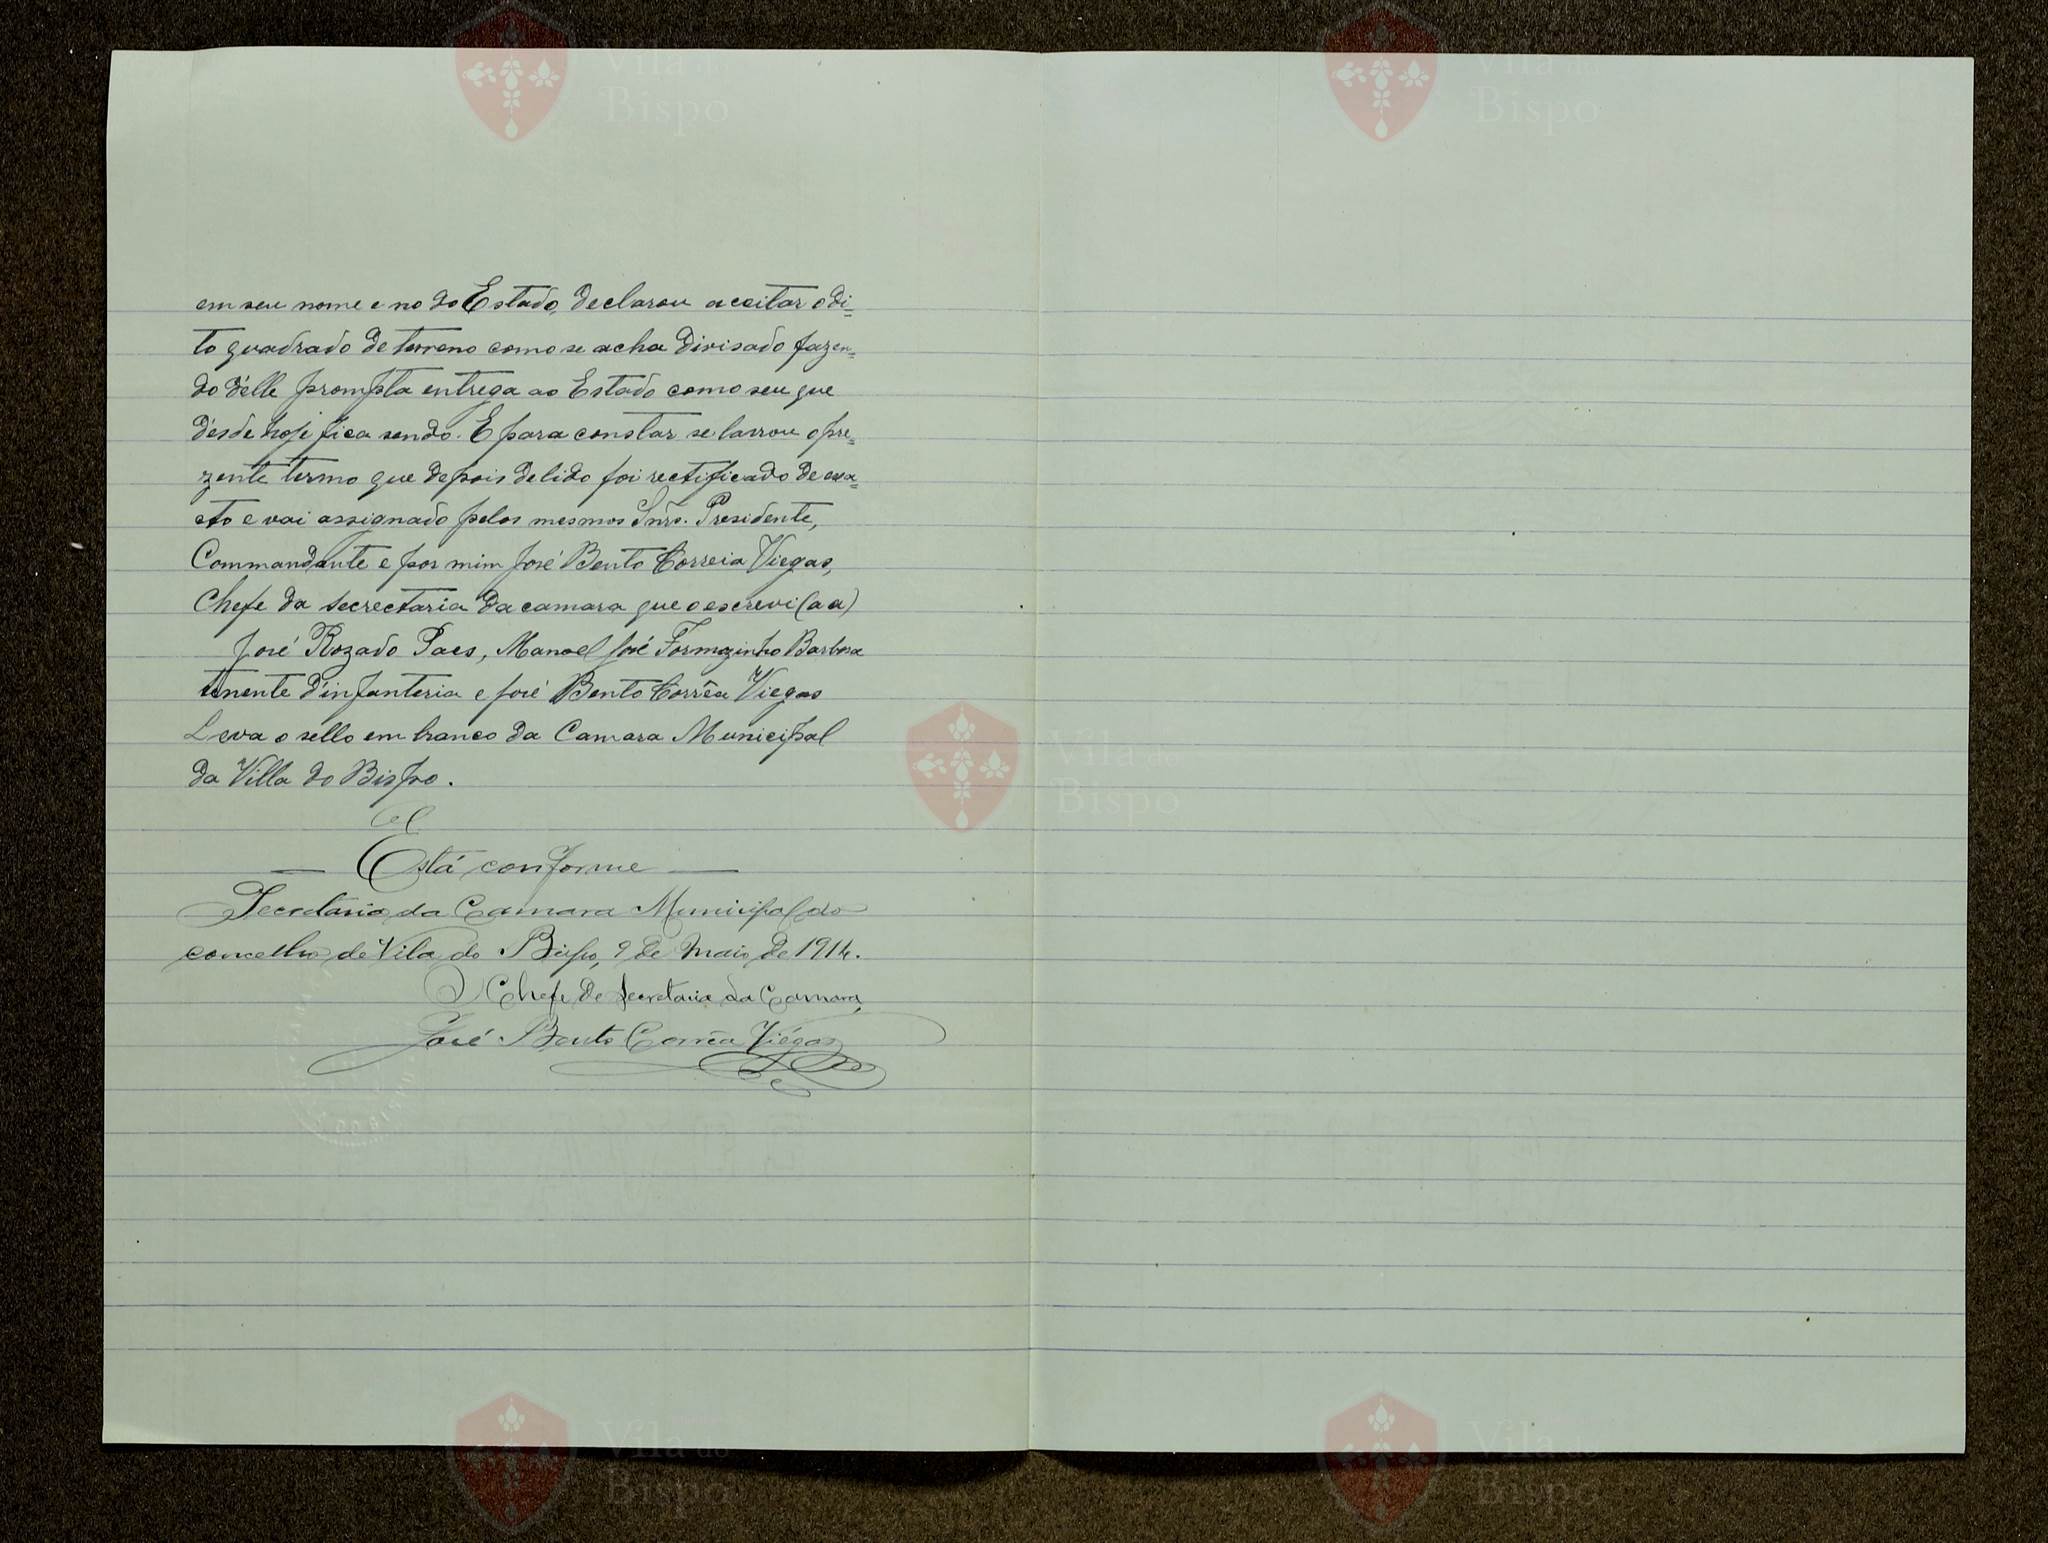 em seu nome e no do Estado, declarou aceitar o di=
to quadrado de terreno como se acha divisado fazen=
do d'elle prompta entrega ao Estado como seu que
désde hoje fica sendo. E para constar se lavrou o pre=
zente termo que depois de lido foi rectificado de exa=
cto e vai assignado pelos mesmos Snrs. Presidente,
Commandante e por mim José Bento Correia Viegas,
Chefe da secrectaria da camara que o escrevi (aa)
José Rozado Paes, Manoel José Formozinho Barbosa
tenente d'infanteria e José Bento Corrêa Viegas
Leva o sello em branco da Camara Municipal
da Villa do Bispo.
Está conforme
Secretaria da Camara Municipal do
concelho de Vila do Bispo, 9 de Maio de 1914.
O Chefe de Secretaria da Camara,
José Bento Corrêa Viégas
Vila do
Bispo
Vila do
Bispo
Vila do
Bispo
Vila do
Bispo
Vila do
Bispo